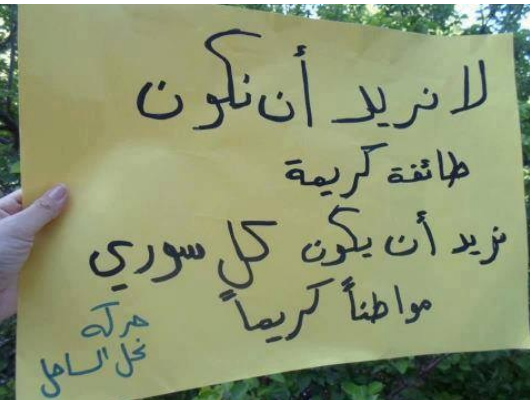 لا نريد أن نكون
طائفة كريمة
نريد أن يكون كل سوري
مواطناً كريماً
حركة
نحل الساحل